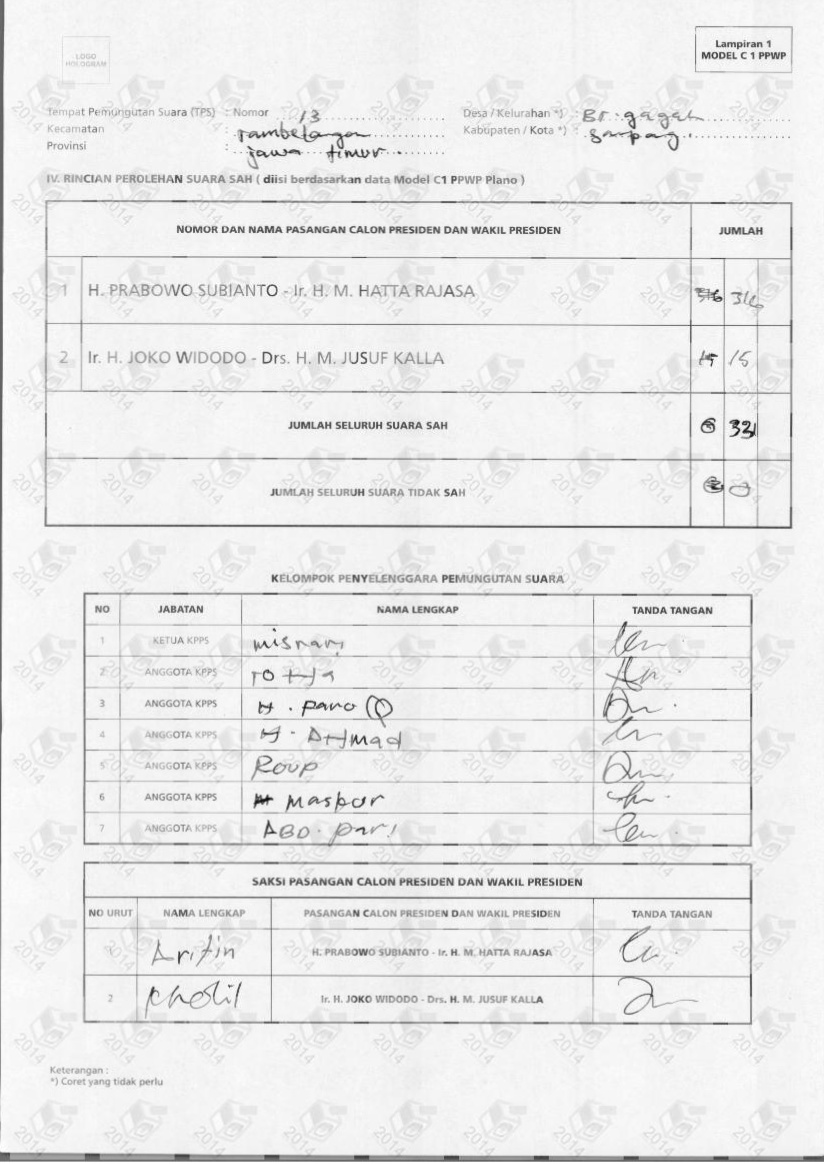 LOGO
HOLOGRAM
Lampiran 1
MODEL C 1 PPWP
Tempat Pemungutan Suara (TPS) : Nomor 13 Desa / Kelurahan *) : Br. gagah
Kecamatan : Tambelangan Kabupaten / Kota *) : Sampang
Provinsi : jawa timur
IV. RINCIAN PEROLEHAN SUARA SAH ( diisi berdasarkan data Model C1 PPWP Plano )
NOMOR DAN NAMA PASANGAN CALON PRESIDEN DAN WAKIL PRESIDEN JUMLAH
1 H. PRABOWO SUBIANTO - Ir. H. M. HATTA RAJASA 316
2 Ir. H. JOKO WIDODO - Drs. H. M. JUSUF KALLA 15
JUMLAH SELURUH SUARA SAH 331
JUMLAH SELURUH SUARA TIDAK SAH 0
KELOMPOK PENYELENGGARA PEMUNGUTAN SUARA
NO JABATAN NAMA LENGKAP TANDA TANGAN
1 KETUA KPPS
2 ANGGOTA KPPS
3 ANGGOTA KPPS
4 ANGGOTA KPPS H. AHmad
5 ANGGOTA KPPS Roup
6 ANGGOTA KPPS
7 ANGGOTA KPPS ABD. pari
SAKSI PASANGAN CALON PRESIDEN DAN WAKIL PRESIDEN
NO URUT NAMA LENGKAP PASANGAN CALON PRESIDEN DAN WAKIL PRESIDEN TANDA TANGAN
1 Arifin H. PRABOWO SUBIANTO - Ir. H. M. HATTA RAJASA
2 kholil Ir. H. JOKO WIDODO - Drs. H. M. JUSUF KALLA
Keterangan :
*) Coret yang tidak perlu